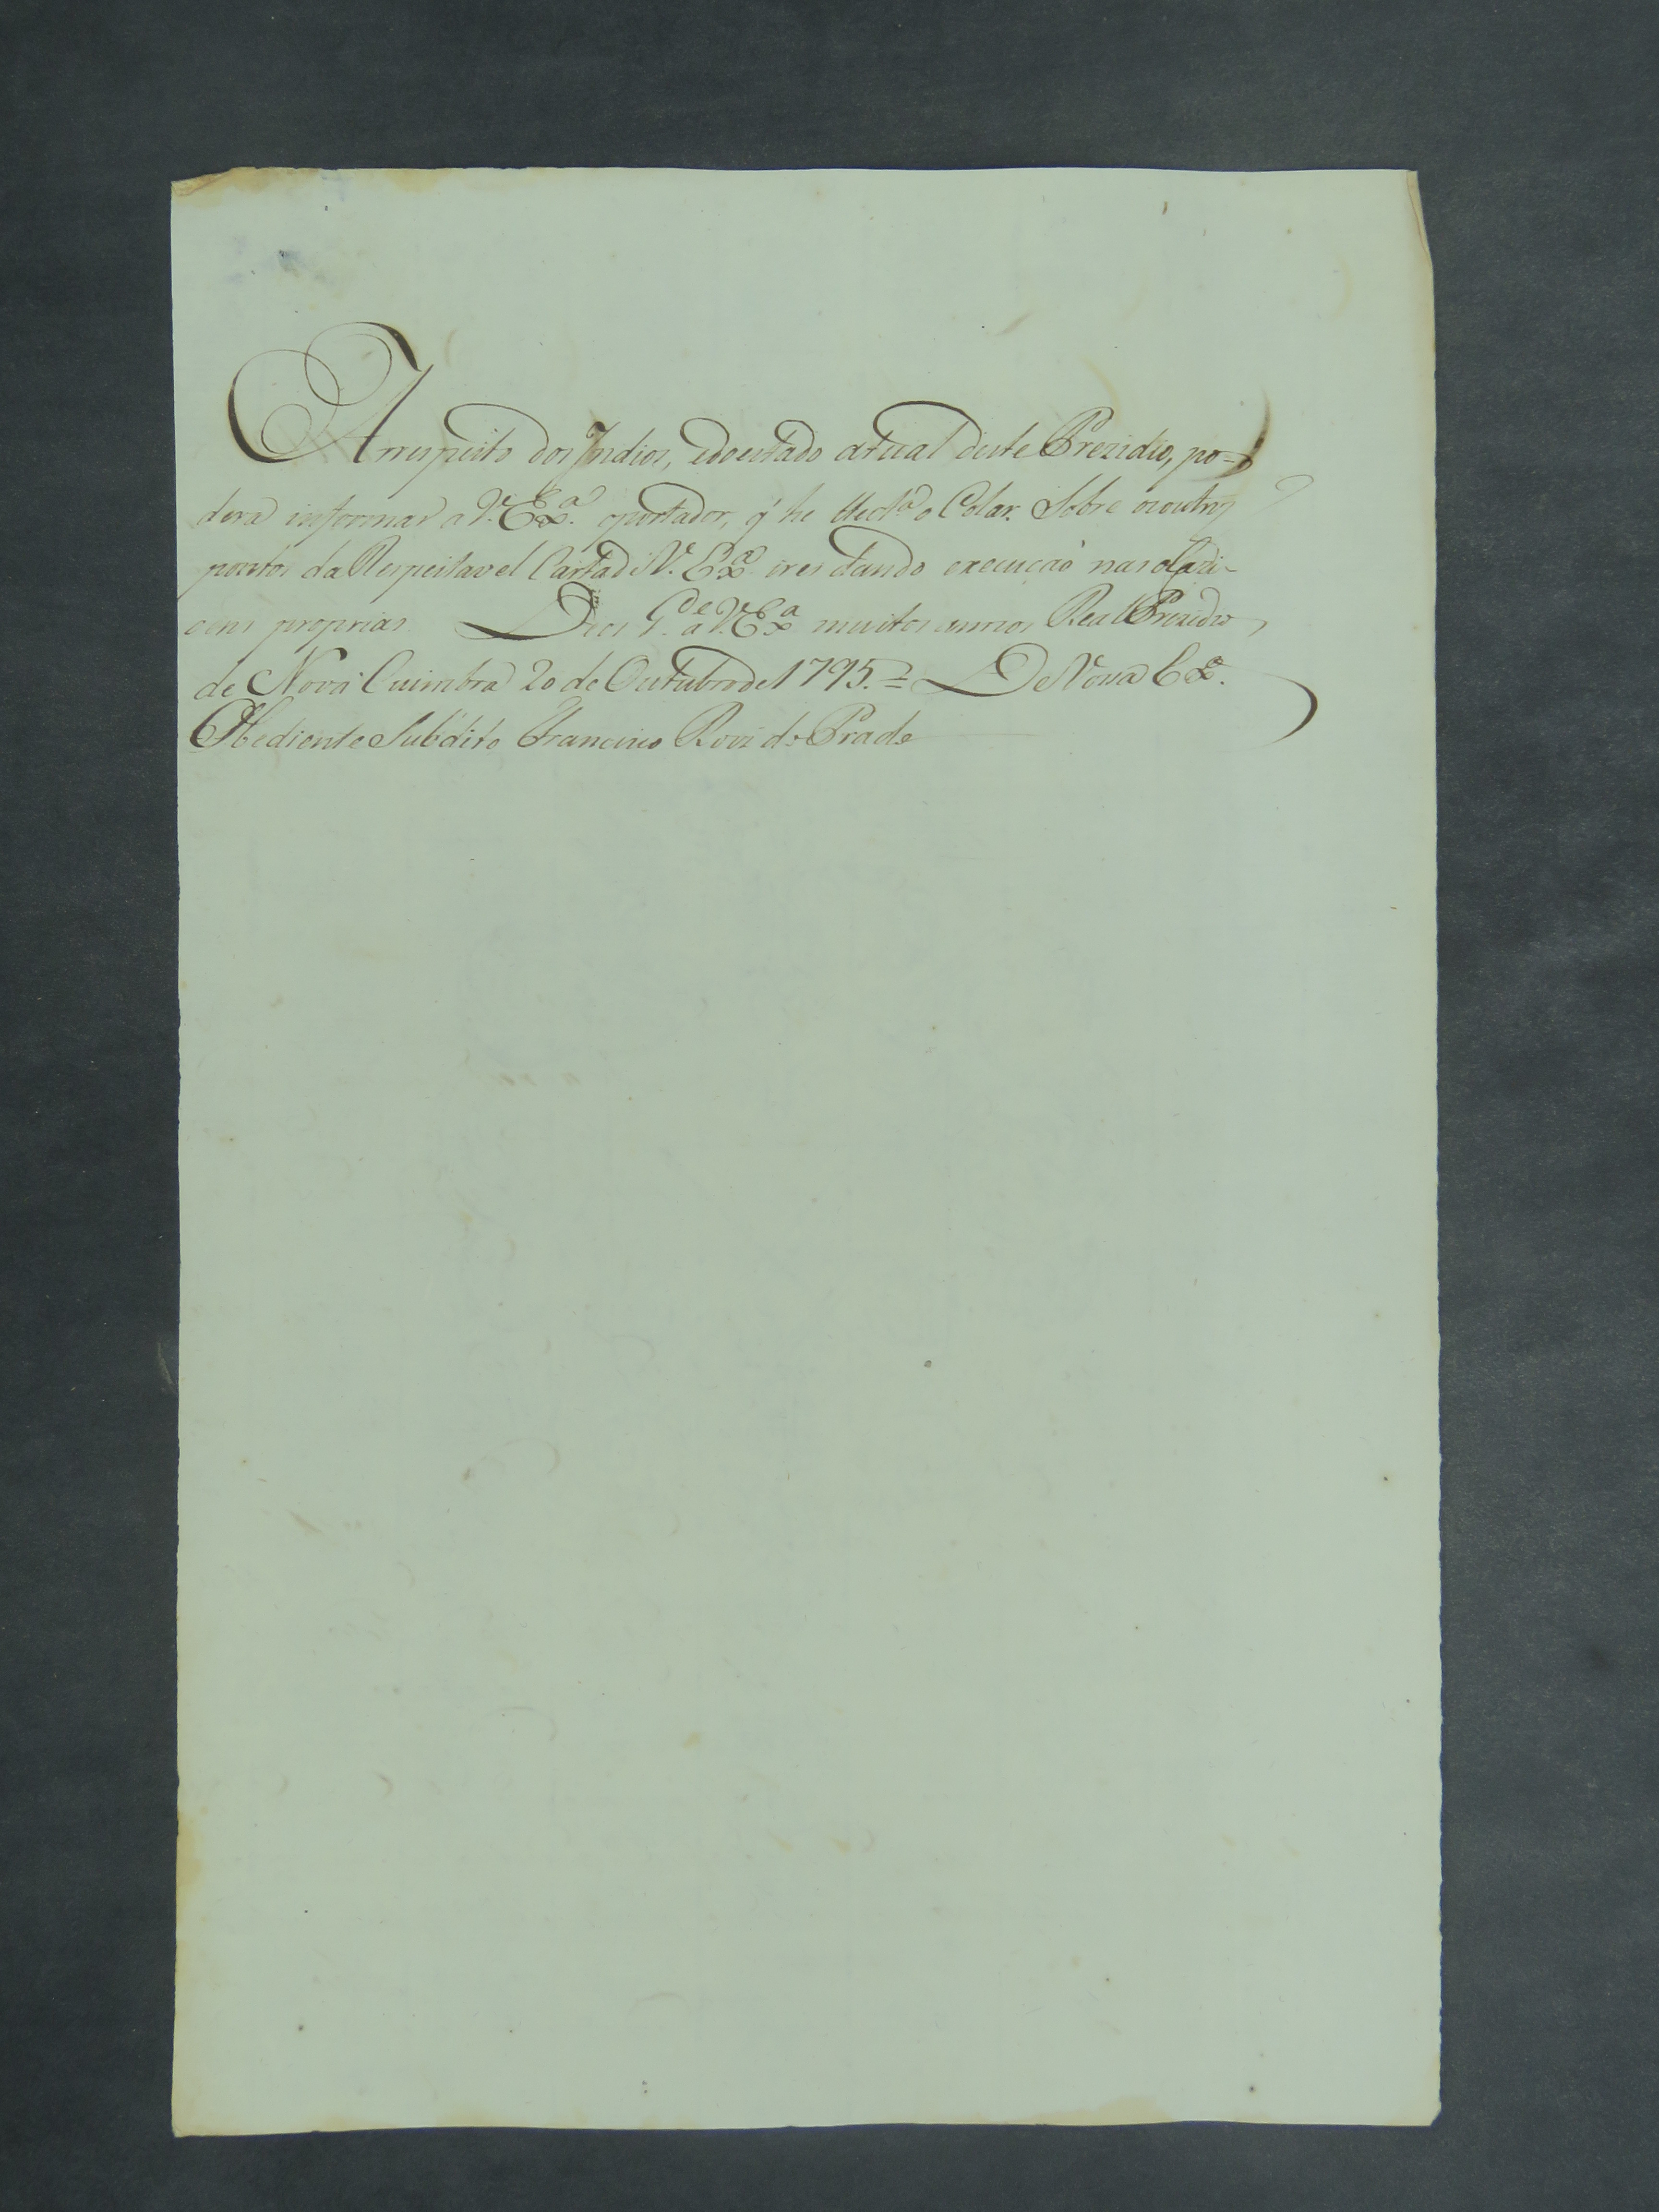 Arrespeito dos Indios, edoestado atual deste Prezidio, po=
dera informar a V. Exª. oportador, q' he o Colar. Sobre ooutros
pontos da Respeitavel Carta d V. Exª irei dando execução nas ocazi-
oens proprias. Deos G.de a V. Exª muitos annos Real Prezidio
de Nova Cuimbra 20 de Outubro de 1795.= De Vossa Exª.
Obediente Subdito Francisco Roiz do Prado